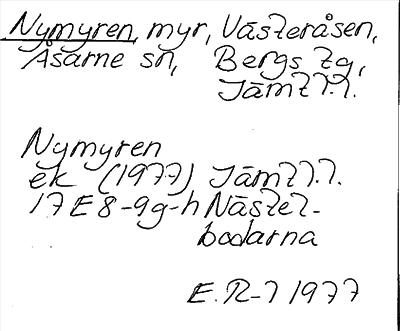 Nymyren, myr, Västeråsen,
Åsarne sn, Bergs tg,
Jämtl.l.
Nymyren
ek (1977) Jämtl.l.
17E8-9g-h Nästel-
bodarna
E.R-l 1977